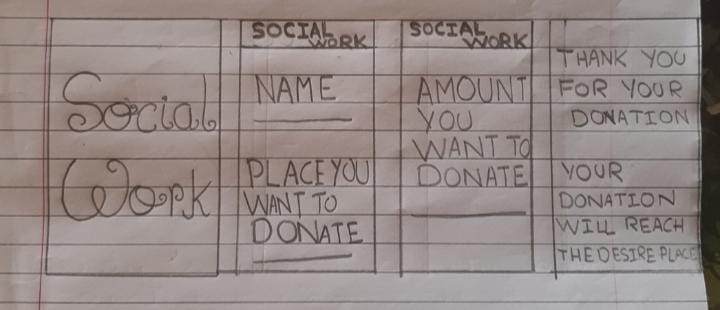 Social
Work
SOCIAL
WORK
NAME
PLACE YOU
WANT TO
DONATE
SOCIAL
WORK
AMOUNT
YOU
WANT TO
DONATE
THANK YOU
FOR YOUR
DONATION
YOUR
DONATION
WILL REACH
THE DESIRE PLACE